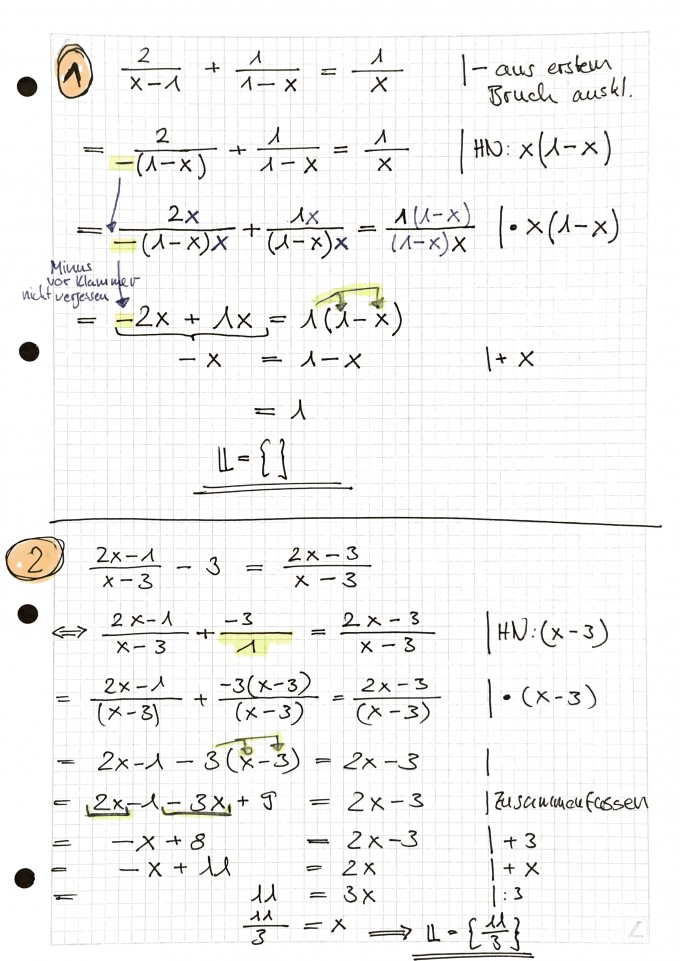 1
2/(x-1) + 1/(1-x) = 1/x |- aus erstem
Bruch auskl.
= 2/(-(1-x)) + 1/(1-x) = 1/x | HN: x(1-x)
= 2x/(-(1-x)x) + 1x/((1-x)x) = 1(1-x)/((1-x)x) | • x(1-x)
Minus
vor Klammer
nicht vergessen
= -2x + 1x = 1(1-x)
-x = 1-x |+ x
= 1
𝕃 = { }
2
(2x-1)/(x-3) - 3 = (2x-3)/(x-3)
⇔ (2x-1)/(x-3) + (-3)/1 = (2x-3)/(x-3) | HN: (x-3)
= (2x-1)/(x-3) + (-3(x-3))/(x-3) = (2x-3)/(x-3) | • (x-3)
= 2x-1 - 3(x-3) = 2x-3 |
= 2x-1-3x + 9 = 2x-3 | Zusammenfassen
= -x+8 = 2x-3 | +3
= -x+11 = 2x | +x
= 11 = 3x | :3
11/3 = x ⟹ 𝕃 = {11/3}